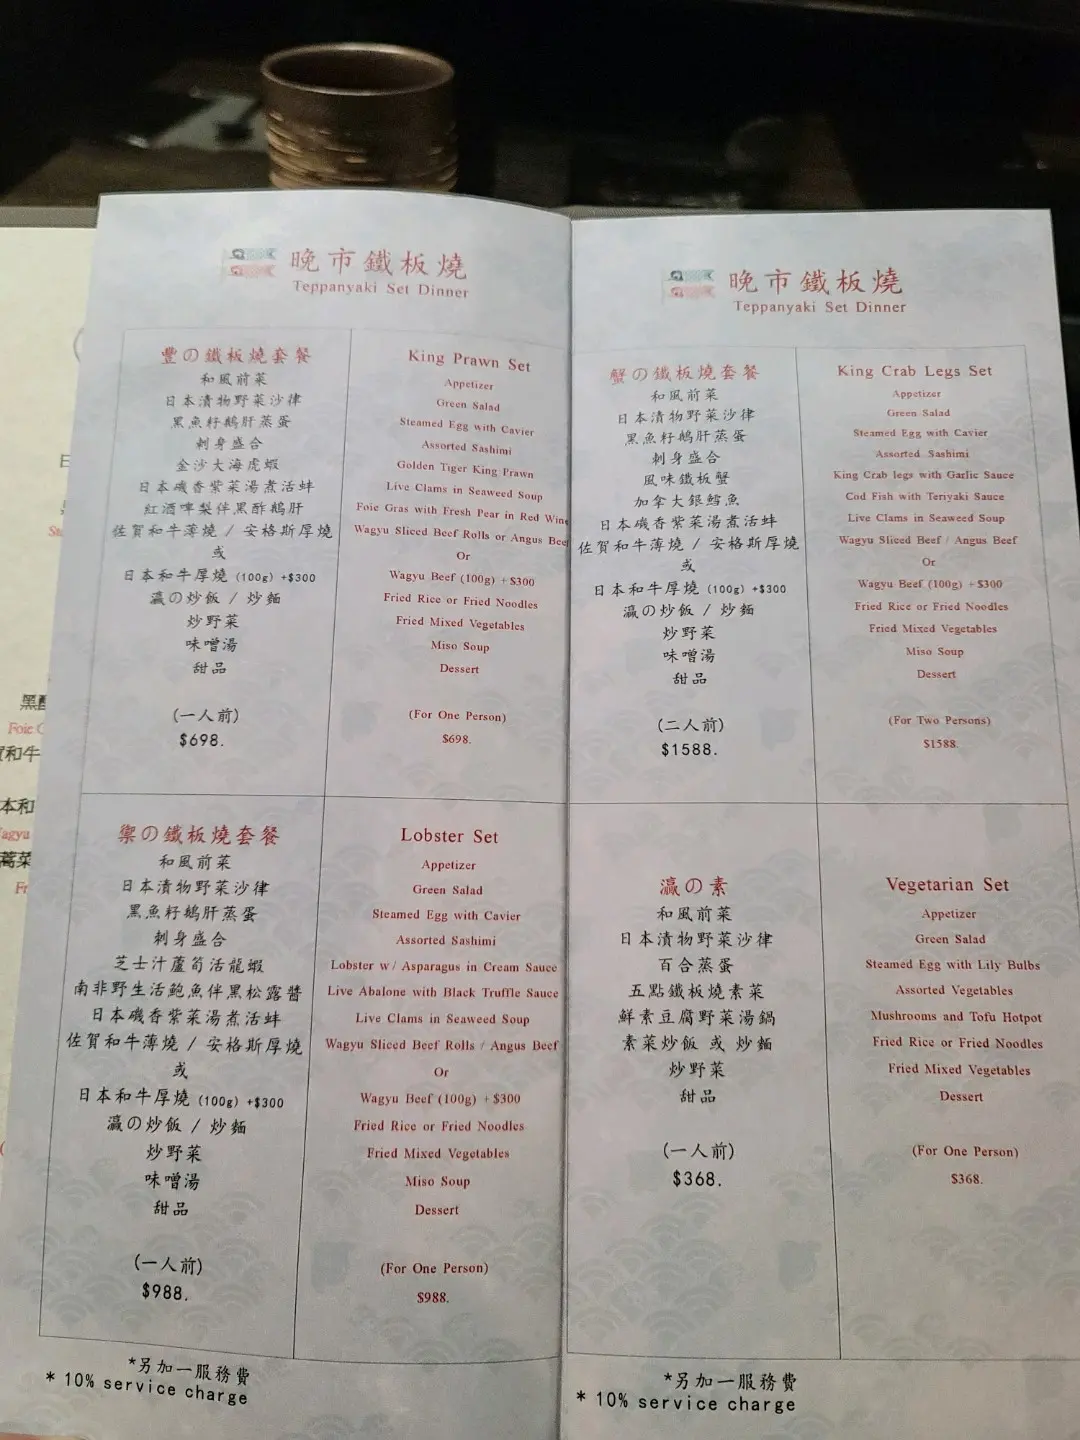 晚市鐵板燒
Teppanyaki Set Dinner
豐の鐵板燒套餐
和風前菜
日本漬物野菜沙律
黑魚籽鵝肝蒸蛋
刺身盛合
金沙大海虎蝦
日本磯香紫菜湯煮活蚌
紅酒啤梨伴黑酢鵝肝
佐賀和牛薄燒 / 安格斯厚燒
或
日本和牛厚燒 (100g) +$300
瀛の炒飯 / 炒麵
炒野菜
味噌湯
甜品
(一人前)
$698.
King Prawn Set
Appetizer
Green Salad
Steamed Egg with Cavier
Assorted Sashimi
Golden Tiger King Prawn
Live Clams in Seaweed Soup
Foie Gras with Fresh Pear in Red Wine
Wagyu Sliced Beef Rolls or Angus Beef
Or
Wagyu Beef (100g) +$300
Fried Rice or Fried Noodles
Fried Mixed Vegetables
Miso Soup
Dessert
(For One Person)
$698.
禦の鐵板燒套餐
和風前菜
日本漬物野菜沙律
黑魚籽鵝肝蒸蛋
刺身盛合
芝士汁蘆筍活龍蝦
南非野生活鮑魚伴黑松露醬
日本磯香紫菜湯煮活蚌
佐賀和牛薄燒 / 安格斯厚燒
或
日本和牛厚燒 (100g) +$300
瀛の炒飯 / 炒麵
炒野菜
味噌湯
甜品
(一人前)
$988.
Lobster Set
Appetizer
Green Salad
Steamed Egg with Cavier
Assorted Sashimi
Lobster w/ Asparagus in Cream Sauce
Live Abalone with Black Truffle Sauce
Live Clams in Seaweed Soup
Wagyu Sliced Beef Rolls / Angus Beef
Or
Wagyu Beef (100g) +$300
Fried Rice or Fried Noodles
Fried Mixed Vegetables
Miso Soup
Dessert
(For One Person)
$988.
*另加一服務費
* 10% service charge
晚市鐵板燒
Teppanyaki Set Dinner
蟹の鐵板燒套餐
和風前菜
日本漬物野菜沙律
黑魚籽鵝肝蒸蛋
刺身盛合
風味鐵板蟹
加拿大銀鱈魚
日本磯香紫菜湯煮活蚌
佐賀和牛薄燒 / 安格斯厚燒
或
日本和牛厚燒 (100g) +$300
瀛の炒飯 / 炒麵
炒野菜
味噌湯
甜品
(二人前)
$1588.
King Crab Legs Set
Appetizer
Green Salad
Steamed Egg with Cavier
Assorted Sashimi
King Crab legs with Garlic Sauce
Cod Fish with Teriyaki Sauce
Live Clams in Seaweed Soup
Wagyu Sliced Beef / Angus Beef
Or
Wagyu Beef (100g) +$300
Fried Rice or Fried Noodles
Fried Mixed Vegetables
Miso Soup
Dessert
(For Two Persons)
$1588.
瀛の素
和風前菜
日本漬物野菜沙律
百合蒸蛋
五點鐵板燒素菜
鮮素豆腐野菜湯鍋
素菜炒飯 或 炒麵
炒野菜
甜品
(一人前)
$368.
Vegetarian Set
Appetizer
Green Salad
Steamed Egg with Lily Bulbs
Assorted Vegetables
Mushrooms and Tofu Hotpot
Fried Rice or Fried Noodles
Fried Mixed Vegetables
Dessert
(For One Person)
$368.
*另加一服務費
* 10% service charge